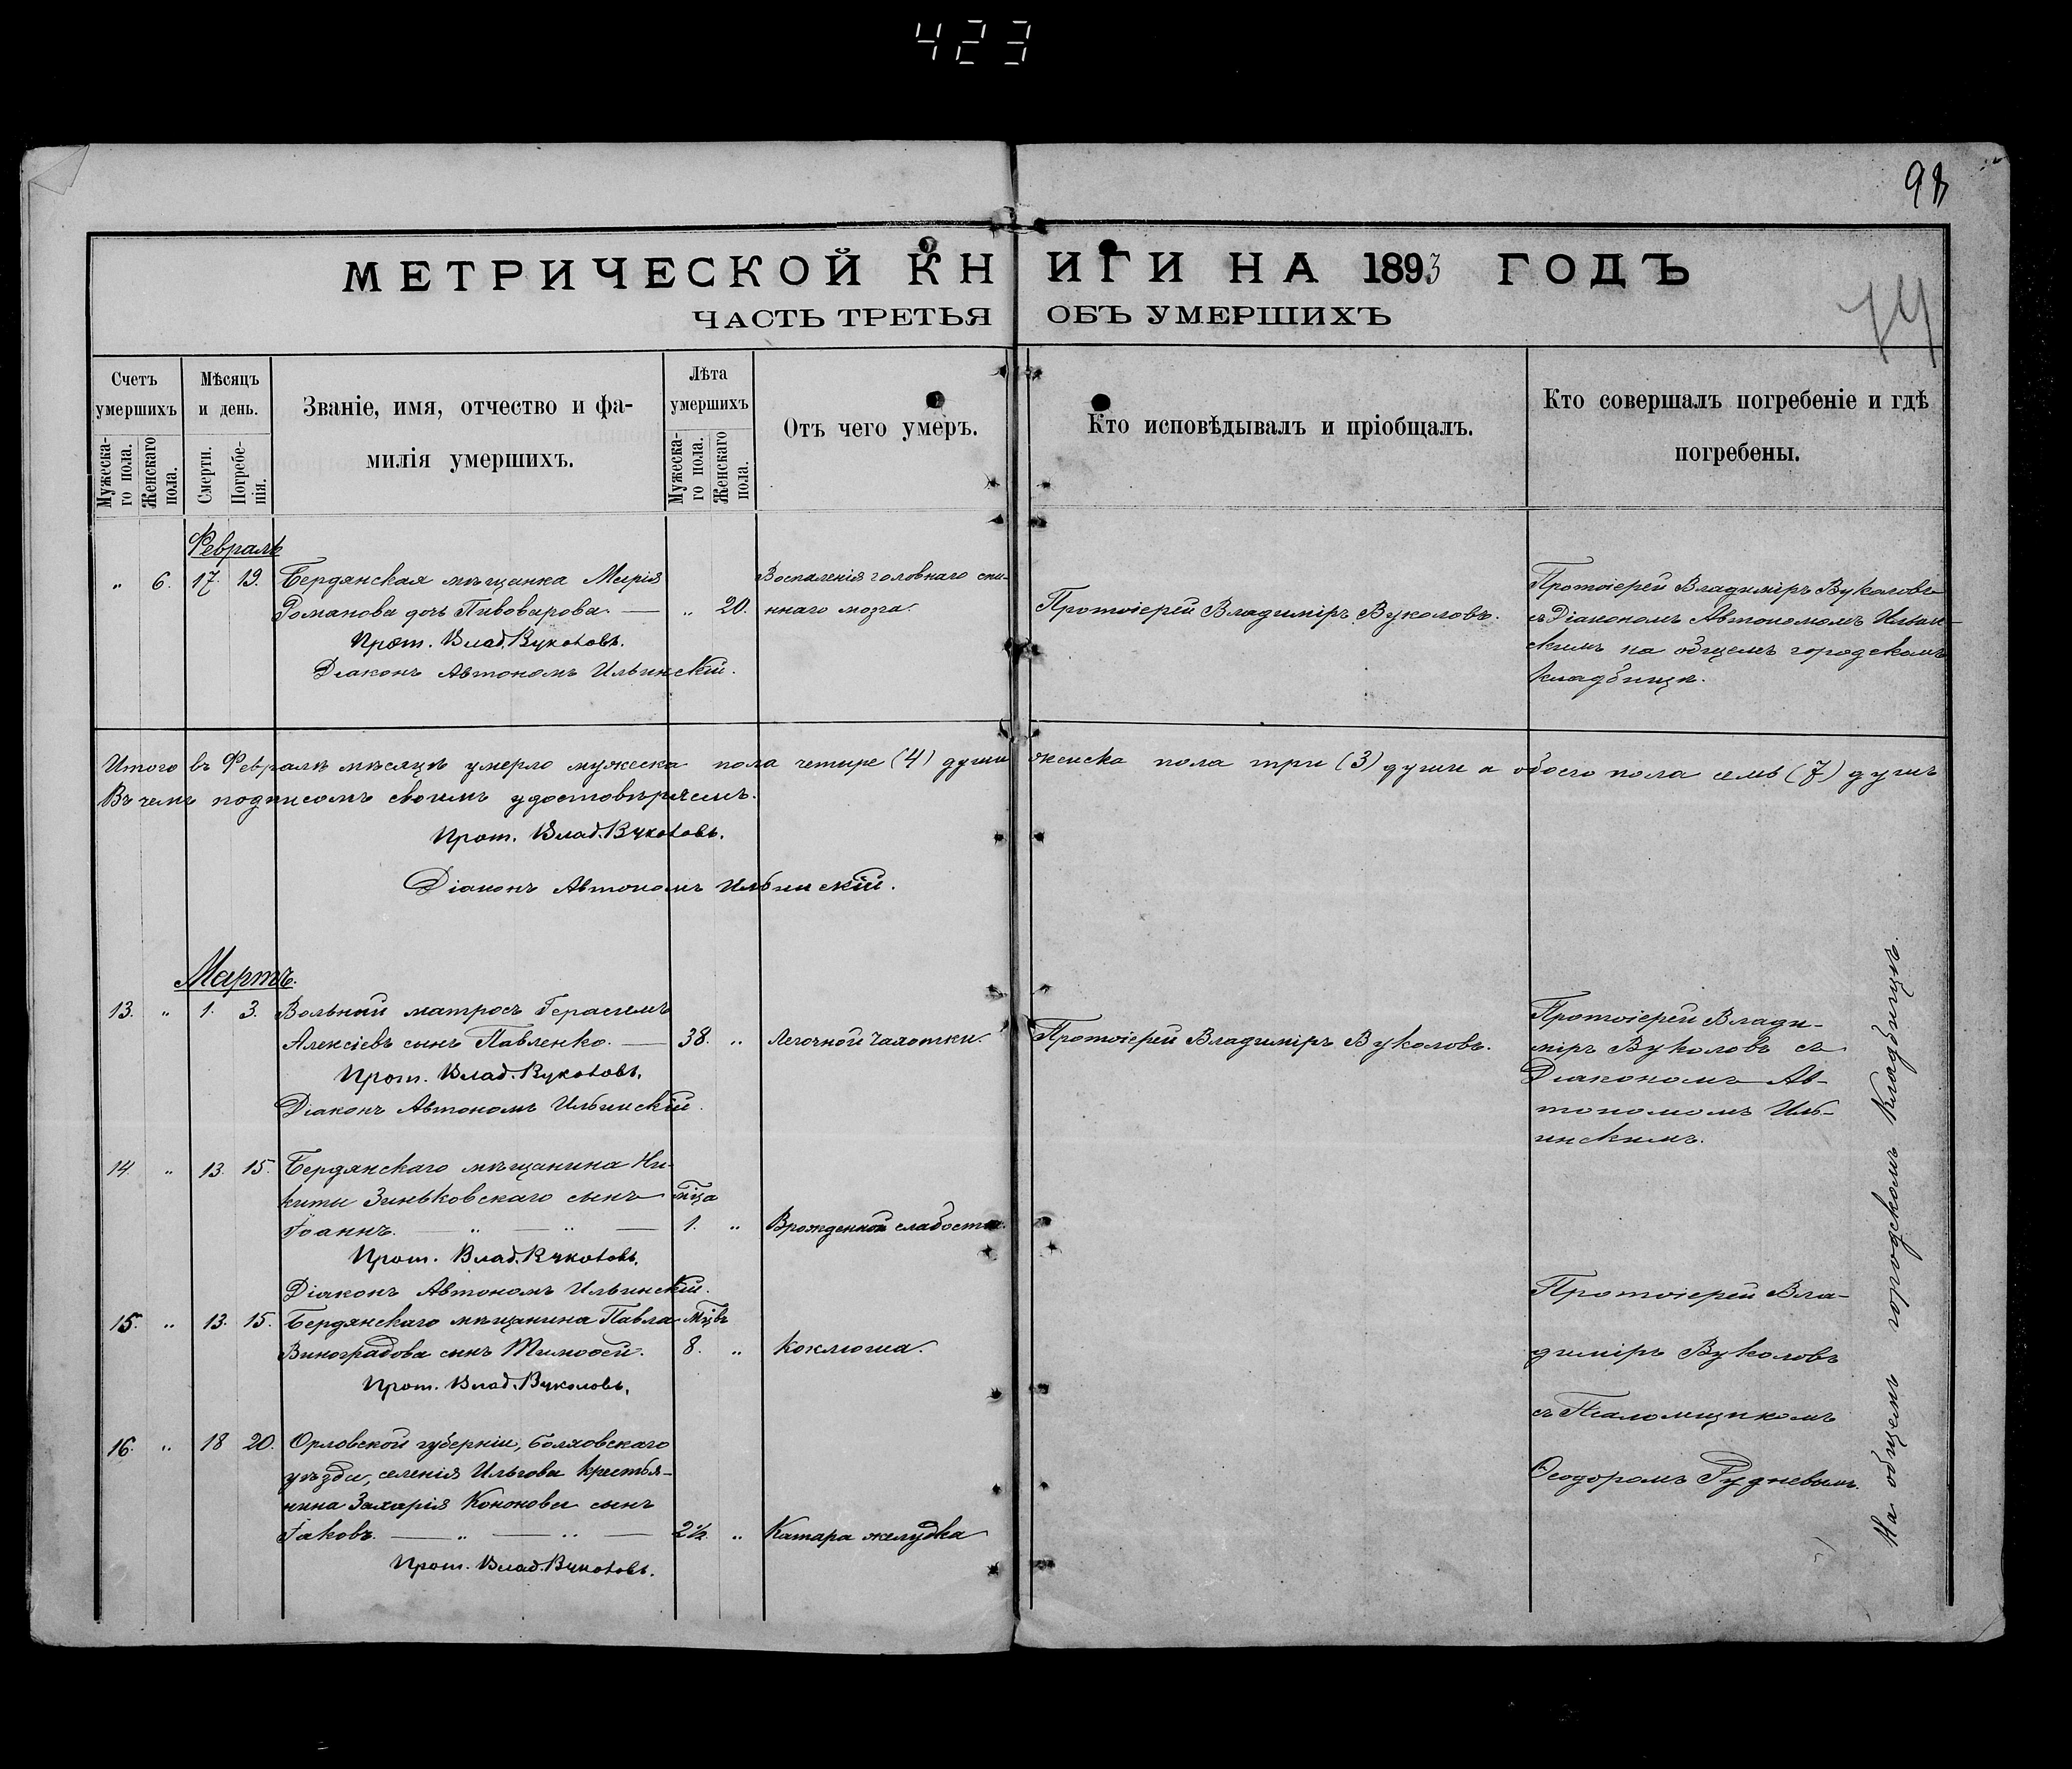 423
98
МЕТРИЧЕСКОЙ КНИГИ НА 1893 ГОДЪ
74
ЧАСТЬ ТРЕТЬЯ ОБЪ УМЕРШИХЪ
Счетъ умершихъ
Мужескаго пола.
Женскаго пола.
Мѣсяцъ и день.
Смерти.
Погребенія.
Званіе, имя, отчество и фамилія умершихъ.
Лѣта умершихъ
Мужескаго пола.
Женскаго пола.
Отъ чего умеръ.
Кто исповѣдывалъ и пріобщалъ.
Кто совершалъ погребеніе и гдѣ погребены.
Февраль
" 6. 17. 19. Бердянская мѣщанка Марія
Романова дочь Пивоварова. — " 20.
Воспаленія головнаго спи-
ннаго мозга.
Протоіерей Владиміръ Вуколовъ.
Протоіерей Владиміръ Вуколовъ
съ Діакономъ Автономомъ Ильин-
скимъ на общемъ городскомъ
кладбищѣ.
Прот. Влад. Вуколовъ.
Діаконъ Автономъ Ильинскій.
Итого въ Февралѣ мѣсяцѣ умерло мужеска пола четыре (4) души женска пола три (3) души а обоего пола семь (7) душъ
Въ чемъ подписомъ своимъ удостовѣряемъ.
Прот. Влад. Вуколовъ.
Діаконъ Автономъ Ильинскій.
Мартъ.
13. " 1. 3. Вольный матросъ Герасимъ
Алексіевъ сынъ Павленко. — 38. " Легочной чахотки.
Протоіерей Владиміръ Вуколовъ.
Протоіерей Влади-
міръ Вуколовъ съ
Діакономъ Ав-
тономомъ Иль-
инскимъ.
Прот. Влад. Вуколовъ.
Діаконъ Автономъ Ильинскій.
14. " 13. 15. Бердянскаго мѣщанина Ни-
киты Зиньковскаго сынъ мѣца
Іоаннъ. — " — " — 1. " Врожденной слабости.
Прот. Влад. Вуколовъ.
Діаконъ Автономъ Ильинскій.
15. " 13. 15. Бердянскаго мѣщанина Павла мѣцвъ
Виноградова сынъ Тимофей. 8. " Коклюша.
Прот. Влад. Вуколовъ.
16. " 18 20. Орловской губерніи, Болховскаго
уѣзда, селенія Ильгова крестья-
нина Захарія Кононова сынъ
Іаковъ. — " — " — 2½. " Катара желудка
Прот. Влад. Вуколовъ.
Протоіерей Вла-
диміръ Вуколовъ
съ Псаломщикомъ
Ѳеодоромъ Рудневымъ.
На общемъ городскомъ кладбищѣ.